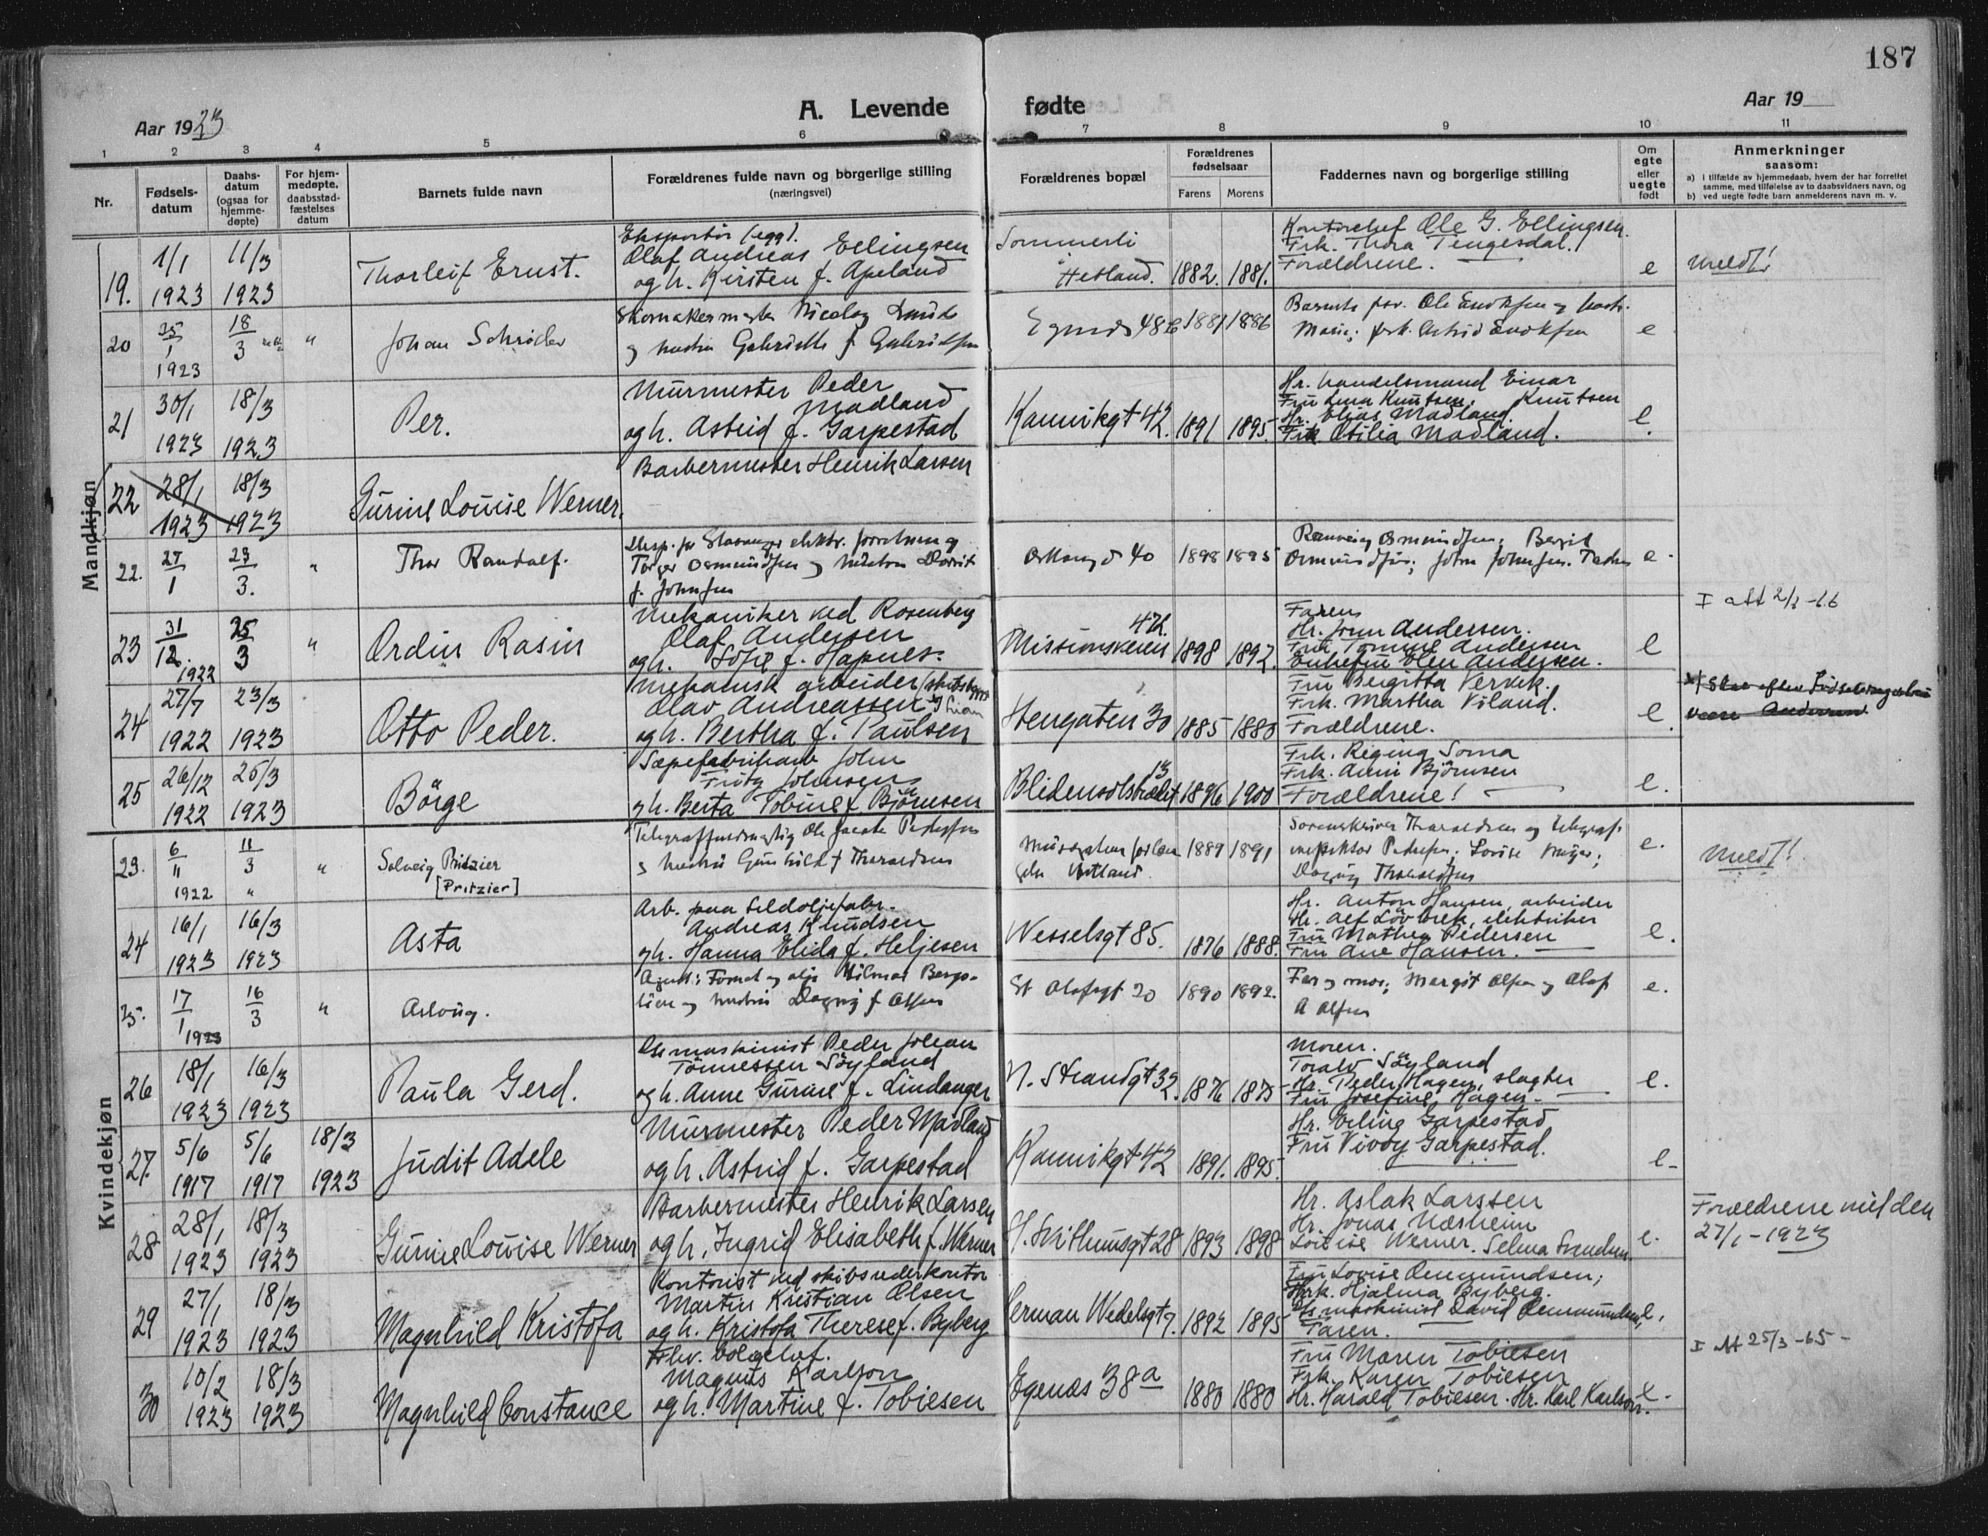 187
Aar 1923
A. Levende fødte
Aar 19
1 2 3 4 5 6 7 8 9 10 11
Nr.
Fødsels-
datum
Daabs-
datum
(ogsaa for
hjemme-
døpte)
For hjem-
medøpte,
daabsstad-
fæstelses
datum
Barnets fulde navn
Forældrenes fulde navn og borgerlige stilling
(næringsvei)
Forældrenes bopæl
Forældrenes
fødselsaar
Farens Morens
Faddernes navn og borgerlige stilling
Om
egte
eller
uegte
født
Anmerkninger
saasom:
a) i tilfælde av hjemmedaab, hvem der har forrettet
samme, med tilføielse av to daabsvidners navn, og
b) ved uegte fødte barn anmelderens navn m. v.
Mandkjøn
19. 1/1 1923 11/3 1923 Thorleif Ernst.
Eksportør (egg).
Olaf Andreas Ellingsen
og h. Kirsten f. Apeland
Sommerli
Hetland. 1882. 1881.
Kontorchef Ole G. Ellingsen.
Frk. Thora Tengesdal.
Forældrene. e Meldt!
20 25/1 1923 18/3 " Johan Schrøder
Skomakermester Nicolay
og hustru f
48 1881 1886
Barnets Ole og
Marie; frk. Astrid e
21 30/1 1923 18/3 1923 Per.
Murmester Peder
Madland
og h. Astrid f. Garpestad
Kannikgt 42. 1891 1895.
Hr. handelsmand Einar
Fru Lina Knutsen. Knutsen
Hr. Elias Madland
Frk Otilia Madland. e.
22 28/1 1923 18/3 1923 Gurine Louise Werner.
Barbermester Henrik Larsen
22. 27/1 23/3. " Thor Randolf.
Eksp. for Stavanger elektr. forretning
Torger Osmundsen og hustru
f. Johnsen
40 1898 1895
Rannveig Osmundsen; Bergit
Osmundsen; John Johnsen. e.
I att 2/3-66
23 31/12 1922 25/3 " Ordin Rasin
Mekaniker ved Rosenberg
Olaf Andersen
og h. Sofie f. Hapnes.
47b.
Missionsveien 1898 1897.
Faren
Hr. Andersen.
Frk. Andersen
Enkefru Elen Andersen. e
24 27/7 1922 23/3 1923 Otto Peder.
Mekanisk arbeider
Olav Andreassen
og h. Bertha f. Paulsen
Hengaten 30 1885 1880
Fru Birgitta Vervik.
Frk. Martha Viland.
Forældrene. e.
25 26/12 1922 25/3 1923 Börge
Sæpefabrikant John
Fritz Johnsen
og h. Berta Tobine f. Björnsen
13
Blidensolstrædet 1896 1900
Frk. Regina Soma
Frk. Anni Björnsen
Forældrene! e.
Kvindekjøn
23. 6/11 1922 11/3 " " Solveig Pritzier
[Pritzier]
Telegraffuldmægtig Ole Pedersen
og hustru Gunhild f Tharaldsen
Hetland. 1889 1891
Sorenskriver Tharaldsen og telegraf-
inspektør Pedersen; Louise Meyer;
Dagny Tharaldsen e. Meldt!
24 16/1 1923 16/3 1923 Asta
Arb. paa Sildoljefabr.
Andreas Knudsen
og h. Hanna Elida f. Heljesen
Wesselsgt 85. 1876 1888.
Hr. Anton Hansen, arbeider
Hr. Alf elektriker
Fru Mathea Pedersen
Fru Ane Hansen. e.
25. 17/1 1923 16/3 " Aslaug.
Agent: Hilmar Bergs-
lien og hustru Dagny f Olsen
St Olafsgt 20 1890 1892.
Far og mor; Margit Olsen og Olaf
A Olsen e.
26 18/1 1923 16/3 1923 Paula Gerd.
Eksmaskinist Peder Johan
Tönnessen Söyland
og h. Anne Gurine f. Lindanger
N. Strandgt 32. 1876 1875
Moren.
Toralv Söyland
Hr. Peder Hagen, slagter
Fru Josefine Hagen. e.
27. 5/6 1917 5/6 1917 18/3 1923 Judit Adele
Murmester Peder Madland
og h. Astrid f. Garpestad
Kannikgt 42 1891. 1895.
Hr. Erling Garpestad
Fru Vivoy Garpestad. e.
28 28/1 1923 18/3 1923 Gurine Louise Werner
Barbermester Henrik Larsen
og h. Ingrid Elisabeth f. Werner
St. Svithunsgt 28 1893 1898
Hr. Aslak Larssen
Hr. Jonas Næsheim
Louise Werner. Selma Svendsen e.
Forældrene viel den
27/1-1923
29 27/1 1923 18/3 1923 Magnhild Kristofa
Kontorist ved skibsrederkontor
Martin Kristian Olsen
og h. Kristofa Therese f. Byberg
Herman Wedelsgt 7. 1892 1895
Fru Lovise Ommundsen;
Frk. Hjalma Byberg.
Eksmaskinist David Ommundsen,
Faren. e.
I att 25/3-65-
30 10/2 1923 18/3 1923 Magnhild Constance
Magnus Karlson
og h. Martine f. Tobiesen
Egenæs 38a 1880 1880
Fru Maren Tobiesen
Frk. Karen Tobiesen
Hr. Harald Tobiesen. Hr. Karl Karlson. e.